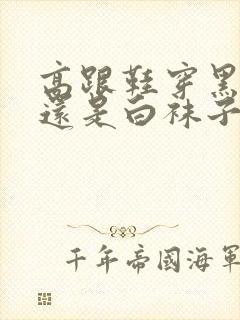 高跟鞋穿黑
還是白袜子
千年帝國海軍